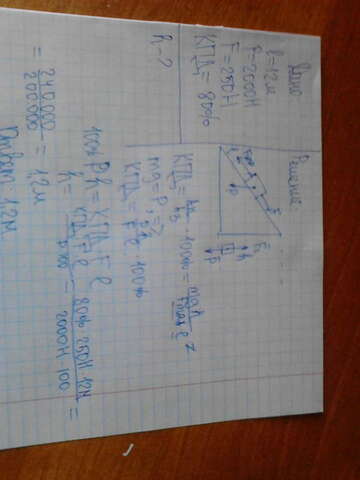 Дано
l=12м
P=2000Н
F=250Н
КПД=80%
h-?
Решение:
КПД = Aп/Aз · 100% = mgh/Fтяг l =
mg=P, =>
КПД = Ph/Fl · 100%
100% Ph = КПД F l
h = КПД F l/P·100 = 80% 250Н·12м/2000Н·100 =
= 240.000/200.000 = 1.2м
Ответ 1.2м